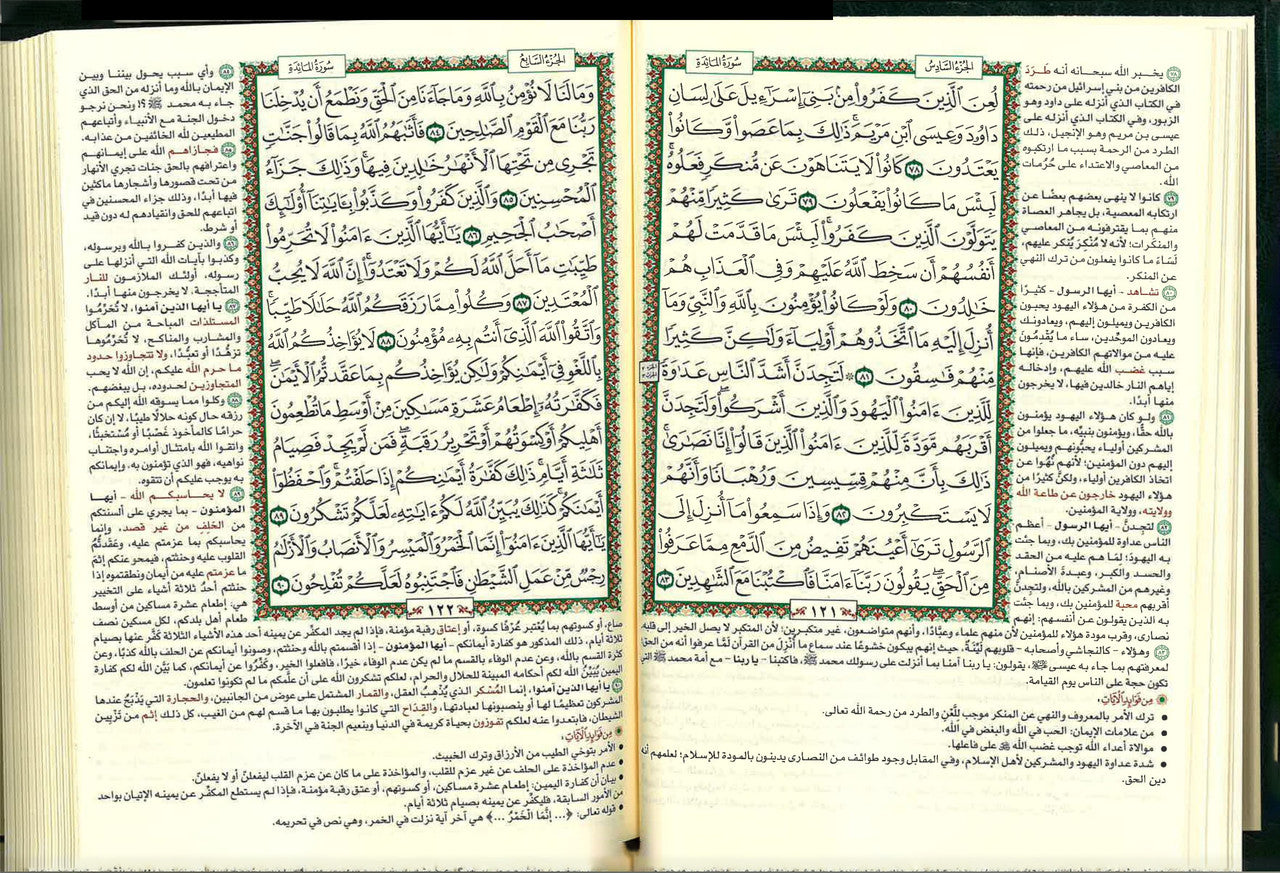 الجزء السادس
سورة المائدة
لُعِنَ ٱلَّذِينَ كَفَرُوا۟ مِنۢ بَنِىٓ إِسْرَٰٓءِيلَ عَلَىٰ لِسَانِ
دَاوُۥدَ وَعِيسَى ٱبْنِ مَرْيَمَ ۚ ذَٰلِكَ بِمَا عَصَوا۟ وَّكَانُوا۟
يَعْتَدُونَ ٧٨ كَانُوا۟ لَا يَتَنَاهَوْنَ عَن مُّنكَرٍ فَعَلُوهُ ۚ
لَبِئْسَ مَا كَانُوا۟ يَفْعَلُونَ ٧٩ تَرَىٰ كَثِيرًا مِّنْهُمْ
يَتَوَلَّوْنَ ٱلَّذِينَ كَفَرُوا۟ ۚ لَبِئْسَ مَا قَدَّمَتْ لَهُمْ
أَنفُسُهُمْ أَن سَخِطَ ٱللَّهُ عَلَيْهِمْ وَفِى ٱلْعَذَابِ هُمْ
خَٰلِدُونَ ٨٠ وَلَوْ كَانُوا۟ يُؤْمِنُونَ بِٱللَّهِ وَٱلنَّبِىِّ وَمَآ
أُنزِلَ إِلَيْهِ مَا ٱتَّخَذُوهُمْ أَوْلِيَآءَ وَلَٰكِنَّ كَثِيرًا
مِّنْهُمْ فَٰسِقُونَ ٨١ ۞ لَتَجِدَنَّ أَشَدَّ ٱلنَّاسِ عَدَٰوَةً
لِّلَّذِينَ ءَامَنُوا۟ ٱلْيَهُودَ وَٱلَّذِينَ أَشْرَكُوا۟ ۖ وَلَتَجِدَنَّ
أَقْرَبَهُم مَّوَدَّةً لِّلَّذِينَ ءَامَنُوا۟ ٱلَّذِينَ قَالُوٓا۟ إِنَّا نَصَٰرَىٰ ۚ
ذَٰلِكَ بِأَنَّ مِنْهُمْ قِسِّيسِينَ وَرُهْبَانًا وَأَنَّهُمْ
لَا يَسْتَكْبِرُونَ ٨٢ وَإِذَا سَمِعُوا۟ مَآ أُنزِلَ إِلَى
ٱلرَّسُولِ تَرَىٰٓ أَعْيُنَهُمْ تَفِيضُ مِنَ ٱلدَّمْعِ مِمَّا عَرَفُوا۟
مِنَ ٱلْحَقِّ ۖ يَقُولُونَ رَبَّنَآ ءَامَنَّا فَٱكْتُبْنَا مَعَ ٱلشَّٰهِدِينَ ٨٣
١٢١
٧٨ يخبر الله سبحانه أنه طَرَدَ
الكافرين من بني إسرائيل من رحمته
في الكتاب الذي أنزله على داود وهو
الزبور، وفي الكتاب الذي أنزله على
عيسى بن مريم وهو الإنجيل، ذلك
الطرد من الرحمة بسبب ما ارتكبوه
من المعاصي والاعتداء على حُرُمات
الله.
٧٩ كانوا لا ينهى بعضهم بعضًا عن
ارتكابه المعصية، بل يجاهر العصاة
منهم بما يقترفونه من المعاصي
والمنكرات؛ لأنه لا مُنْكِرَ يُنكر عليهم،
لَسَاءَ ما كانوا يفعلون من ترك النهي
عن المنكر.
٨٠ تشاهد - أيها الرسول - كثيرًا
من الكفرة من هؤلاء اليهود يحبون
الكافرين ويميلون إليهم، ويعادونك
ويعادون الموحِّدين، ساء ما يُقْدِمُونَ
عليه من موالاتهم الكافرين، فإنها
سبب غضب الله عليهم، وإدخاله
إياهم النار خالدين فيها، لا يخرجون
منها أبدًا.
٨١ ولو كان هؤلاء اليهود يؤمنون
بالله حقًّا، ويؤمنون بنبيِّه، ما جعلوا من
المشركين أولياء يحبُّونهم ويميلون
إليهم دون المؤمنين؛ لأنهم نُهُوا عن
اتخاذ الكافرين أولياء، ولكنَّ كثيرًا من
هؤلاء اليهود خارجون عن طاعة الله
وولايته، وولاية المؤمنين.
٨٢ لتجدنَّ - أيها الرسول - أعظم
الناس عداوة للمؤمنين بك، وبما جئت
به اليهودَ؛ لمَا هم عليه من الحقد
والحسد والكبر، وعبدةَ الأصنام
وغيرهم من المشركين بالله، ولتجدنَّ
أقربهم محبة للمؤمنين بك، وبما جئت
به الذين يقولون عن أنفسهم: إنهم
نصارى، وقرب مودة هؤلاء للمؤمنين لأن منهم علماء وعبَّادًا، وأنهم متواضعون، غير متكبرين؛ لأن المتكبر لا يصل الخير إلى قلبه.
٨٣ وهؤلاء - كالنجاشي وأصحابه - قلوبهم ليِّنَةٌ، حيث إنهم يبكون خشوعًا عند سماع ما أُنْزِلَ من القرآن لمَّا عرفوا أنه من الحق؛
لمعرفتهم بما جاء به عيسى ﷺ، يقولون: يا ربنا آمنا بما أنزلت على رسولك محمد ﷺ، فاكتبنا - يا ربنا - مع أمة محمد ﷺ التي
تكون حجة على الناس يوم القيامة.
من فوائد الآيات:
• ترك الأمر بالمعروف والنهي عن المنكر موجب للَّعْنِ والطرد من رحمة الله تعالى.
• من علامات الإيمان: الحب في الله والبغض في الله.
• موالاة أعداء الله توجب غضب الله على فاعلها.
• شدة عداوة اليهود والمشركين لأهل الإسلام، وفي المقابل وجود طوائف من النصارى يدينون بالمودة للإسلام؛ لعلمهم أنه
دين الحق.
الجزء السابع
سورة المائدة
وَمَا لَنَا لَا نُؤْمِنُ بِٱللَّهِ وَمَا جَآءَنَا مِنَ ٱلْحَقِّ وَنَطْمَعُ أَن يُدْخِلَنَا
رَبُّنَا مَعَ ٱلْقَوْمِ ٱلصَّٰلِحِينَ ٨٤ فَأَثَٰبَهُمُ ٱللَّهُ بِمَا قَالُوا۟ جَنَّٰتٍ
تَجْرِى مِن تَحْتِهَا ٱلْأَنْهَٰرُ خَٰلِدِينَ فِيهَا ۚ وَذَٰلِكَ جَزَآءُ
ٱلْمُحْسِنِينَ ٨٥ وَٱلَّذِينَ كَفَرُوا۟ وَكَذَّبُوا۟ بِـَٔايَٰتِنَآ أُو۟لَٰٓئِكَ
أَصْحَٰبُ ٱلْجَحِيمِ ٨٦ يَٰٓأَيُّهَا ٱلَّذِينَ ءَامَنُوا۟ لَا تُحَرِّمُوا۟
طَيِّبَٰتِ مَآ أَحَلَّ ٱللَّهُ لَكُمْ وَلَا تَعْتَدُوٓا۟ ۚ إِنَّ ٱللَّهَ لَا يُحِبُّ
ٱلْمُعْتَدِينَ ٨٧ وَكُلُوا۟ مِمَّا رَزَقَكُمُ ٱللَّهُ حَلَٰلًا طَيِّبًا ۚ
وَٱتَّقُوا۟ ٱللَّهَ ٱلَّذِىٓ أَنتُم بِهِۦ مُؤْمِنُونَ ٨٨ لَا يُؤَاخِذُكُمُ ٱللَّهُ
بِٱللَّغْوِ فِىٓ أَيْمَٰنِكُمْ وَلَٰكِن يُؤَاخِذُكُم بِمَا عَقَّدتُّمُ ٱلْأَيْمَٰنَ ۖ
فَكَفَّٰرَتُهُۥٓ إِطْعَامُ عَشَرَةِ مَسَٰكِينَ مِنْ أَوْسَطِ مَا تُطْعِمُونَ
أَهْلِيكُمْ أَوْ كِسْوَتُهُمْ أَوْ تَحْرِيرُ رَقَبَةٍ ۖ فَمَن لَّمْ يَجِدْ فَصِيَامُ
ثَلَٰثَةِ أَيَّامٍ ۚ ذَٰلِكَ كَفَّٰرَةُ أَيْمَٰنِكُمْ إِذَا حَلَفْتُمْ ۚ وَٱحْفَظُوٓا۟
أَيْمَٰنَكُمْ ۚ كَذَٰلِكَ يُبَيِّنُ ٱللَّهُ لَكُمْ ءَايَٰتِهِۦ لَعَلَّكُمْ تَشْكُرُونَ ٨٩
يَٰٓأَيُّهَا ٱلَّذِينَ ءَامَنُوٓا۟ إِنَّمَا ٱلْخَمْرُ وَٱلْمَيْسِرُ وَٱلْأَنصَابُ وَٱلْأَزْلَٰمُ
رِجْسٌ مِّنْ عَمَلِ ٱلشَّيْطَٰنِ فَٱجْتَنِبُوهُ لَعَلَّكُمْ تُفْلِحُونَ ٩٠
١٢٢
٨٤ وأي سبب يحول بيننا وبين
الإيمان بالله وما أنزله من الحق الذي
جاء به محمد ﷺ ؟! ونحن نرجو
دخول الجنة مع الأنبياء وأتباعهم
المطيعين لله الخائفين من عذابه.
٨٥ فجازاهم الله على إيمانهم
واعترافهم بالحق جنات تجري الأنهار
من تحت قصورها وأشجارها ماكثين
فيها أبدًا، وذلك جزاء المحسنين في
اتباعهم للحق وانقيادهم له دون قيد
أو شرط.
٨٦ والذين كفروا بالله وبرسوله،
وكذبوا بآيات الله التي أنزلها على
رسوله، أولئك الملازمون للنار
المتأججة، لا يخرجون منها أبدًا.
٨٧ يا أيها الذين آمنوا، لا تُحَرِّمُوا
المستلذات المباحة من المآكل
والمشارب والمناكح، لا تُحَرِّمُوها
تزهُّدًا أو تعبُّدًا، ولا تتجاوزوا حدود
ما حرم الله عليكم، إن الله لا يحب
المتجاوزين لحدوده، بل يبغضهم.
٨٨ وكلوا مما يسوقه الله إليكم من
رزقه حال كونه حلالًا طيبًا، لا إن كان
حرامًا كالمأخوذ غَصْبًا أو مُسْتخبثًا،
واتقوا الله بامتثال أوامره واجتناب
نواهيه، فهو الذي تؤمنون به، وإيمانكم
به يوجب عليكم أن تتقوه.
٨٩ لا يحاسبكم الله - أيها
المؤمنون - بما يجري على ألسنتكم
من الحَلِف من غير قصد، وإنما
يحاسبكم بما عزمتم عليه، وعَقَدتُمُ
القلوب عليه وحنثتم، فيمحو عنكم إثمَ
ما عزمتم عليه من أيمان ونطقتموه إذا
حنثتم أحدُ ثلاثة أشياء على التخيير
هي: إطعام عشرة مساكين من أوسط
طعام أهل بلدكم، لكل مسكين نصف
صاع، أو كسوتهم بما يُعْتبر عُرْفًا كسوة، أو إعتاق رقبة مؤمنة، فإذا لم يجد المكفِّر عن يمينه أحد هذه الأشياء الثلاثة كَفَّر عنها بصيام
ثلاثة أيام، ذلك المذكور هو كفارة أيمانكم - أيها المؤمنون - إذا أقسمتم بالله وحنثتم، وصونوا أيمانكم عن الحلف بالله كذبًا، وعن
كثرة القسم بالله، وعن عدم الوفاء بالقسم ما لم يكن عدم الوفاء خيرًا، فافعلوا الخير، وكفِّرُوا عن أيمانكم، كما بَيَّن الله لكم كفارة
اليمين يُبَيِّنُ الله لكم أحكامه المبينة للحلال والحرام، لعلكم تشكرون الله على أن علَّمكم ما لم تكونوا تعلمون.
٩٠ يا أيها الذين آمنوا، إنما المُسْكر الذي يُذْهِبُ العقل، والقمار المشتمل على عوض من الجانبين، والحجارة التي يَذْبَحُ عندها
المشركون تعظيمًا لها أو ينصبونها لعبادتها، والقِدَاح التي كانوا يطلبون بها ما قسم لهم من الغيب، كل ذلك إثم من تَزْيِين
الشيطان، فابتعدوا عنه لعلكم تفوزون بحياة كريمة في الدنيا وبنعيم الجنة في الآخرة.
من فوائد الآيات:
• الأمر بتوخي الطيب من الأرزاق وترك الخبيث.
• عدم المؤاخذة على الحلف عن غير عزم للقلب، والمؤاخذة على ما كان عن عزم القلب ليفعلنَّ أو لا يفعلنَّ.
• بيان أن كفارة اليمين: إطعام عشرة مساكين، أو كسوتهم، أو عتق رقبة مؤمنة، فإذا لم يستطع المكفِّر عن يمينه الإتيان بواحد
من الأمور السابقة، فليكفِّر عن يمينه بصيام ثلاثة أيام.
• قوله تعالى: ﴿... إِنَّمَا الْخَمْرُ ...﴾ هي آخر آية نزلت في الخمر، وهي نص في تحريمه.